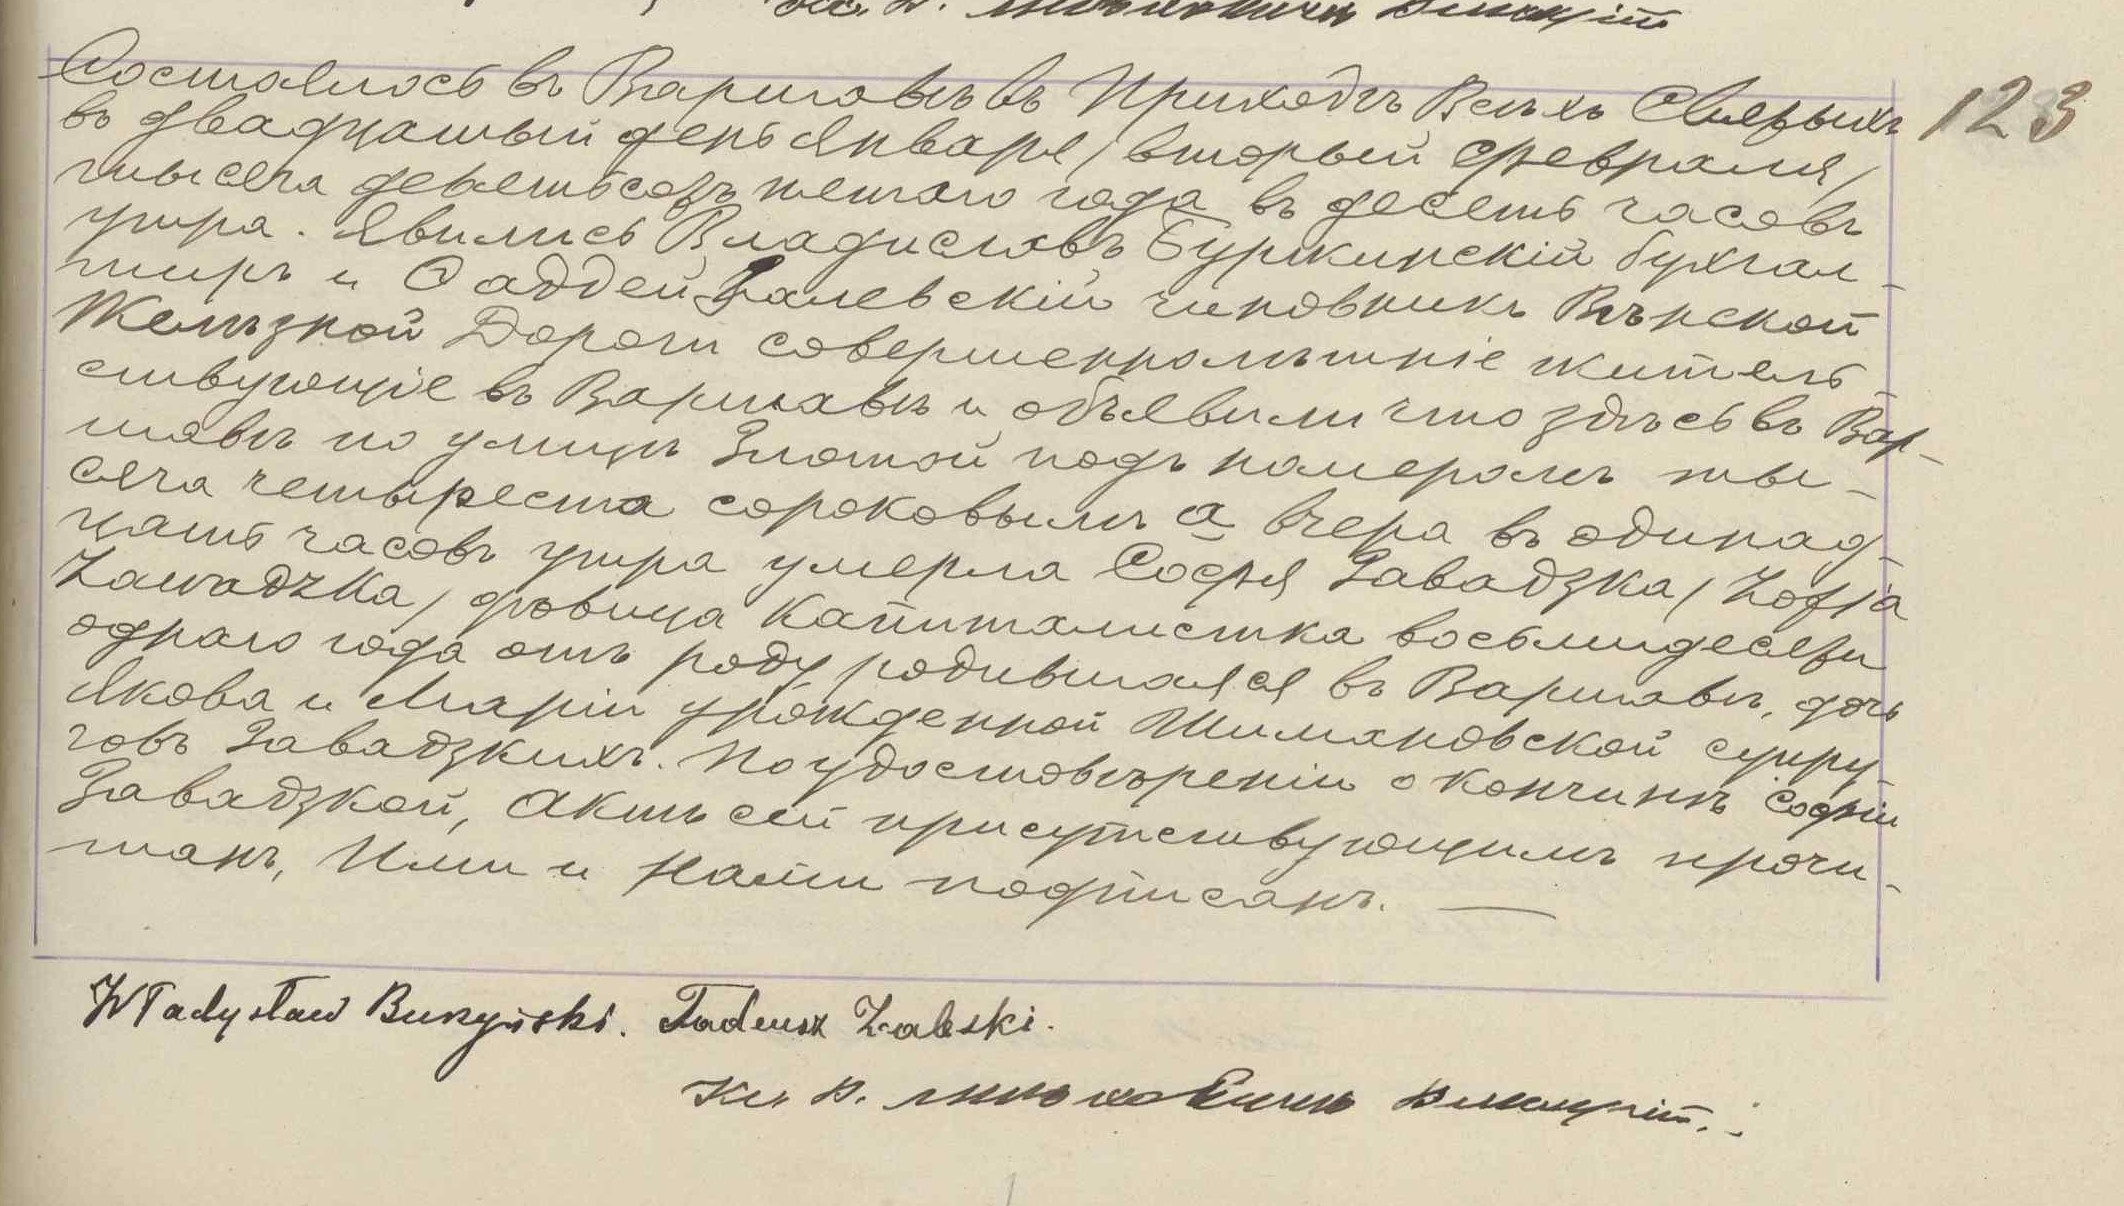 Викарій
Состоялось въ Варшавѣ въ Приходѣ Всѣхъ Святыхъ
123
въ двадцатый день Января /второй Февраля/
тысяча девятьсотъ шестого года въ десять часовъ
утра. Явились Владиславъ Буржинскій бухгал-
теръ и Фаддей Залевскій чиновникъ Вѣнской
Желѣзной Дороги совершеннолѣтніе житель-
ствующіе въ Варшавѣ и объявили что здѣсь въ Вар-
шавѣ по улицѣ Злотой подъ номеромъ ты-
сяча четыреста сороковымъ а вчера въ одинад-
цать часовъ утра умерла Софья Завадзка /Zofja
Zawadzka/ дѣвица капиталистка восьмидесяти
одного года отъ роду родившаяся въ Варшавѣ, дочь
Якова и Маріи урожденной Шимановской супру-
говъ Завадзкихъ. По удостовѣреніи о кончинѣ Софіи
Завадзкой, Актъ сей присутствующимъ прочи-
танъ, Ими и Нами подписанъ. —
Władysław Burzyński. Tadeusz Zaleski.
Кс.